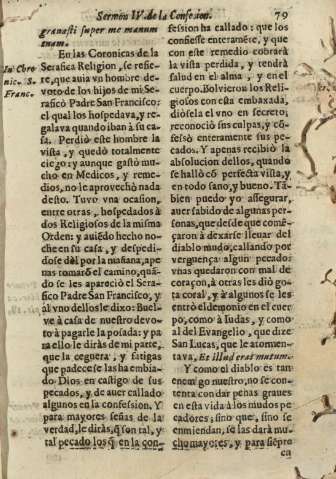 Sermon IV. de la Confesion. 79
granasti super me manum
tuam.
En las Coronicas de la
Serafica Religion, se refie-
re, que auia vn hombre de-
voto de los hijos de mi Se-
rafico Padre San Francisco:
el qual los hospedava, y re-
galava quando iban à su ca-
sa. Perdiò este hombre la
vista, y quedò totalmente
ciego: y aunque gastò mu-
cho en Medicos, y reme-
dios, no le aprovechò nada
desto. Tuvo vna ocasion,
entre otras, hospedados à
dos Religiosos de la misma
Orden: y auiẽdo hecho no-
che en su casa, y despedi-
dose dèl por la mañana, ape-
nas tomarõ el camino, quã-
do se les apareciò el Sera-
fico Padre San Francisco, y
al vno dellos le dixo: Buel-
ve à casa de nuestro devo-
to à pagarle la posada: y pa
ra ello le diràs de mi parte,
que la ceguera, y fatigas
que padece se las ha embia-
do Dios en castigo de sus
pecados, y de auer callado
algunos en la confession. Y
para mayores señas de la
verdad, le diràs, q̃ son tal, y
tal pecado los q̃ en la con-
In Chro
nic. S.
Franc.
fession ha callado: que los
confiesse enteramẽte, y que
con este remedio cobrarà
la vista perdida, y tendrà
salud en el alma, y en el
cuerpo. Bolvieron los Reli-
giosos con esta embaxada,
diòsela el vno en secreto;
reconociò sus culpas, y cõ-
fessò enteramente sus pe-
cados. Y apenas recibiò la
absolucion dellos, quando
se hallò cõ perfecta vista, y
en todo sano, y bueno. Tã-
bien puedo yo assegurar,
auer sabido de algunas per-
sonas, que desde que comẽ-
çaron à dexarse lleuar del
diablo mudo, callando por
verguença algun pecado:
vnas quedaron con mal de
coraçon, à otras les diò go-
ta coral, y à algunos se les
entrò el demonio en el cuer
po, como à Iudas, y como
al del Evangelio, que dize
San Lucas, que le atormen-
tava, Et illud erat mutum.
Y como el diablo es tan
enemigo nuestro, no se con-
tenta con dar penas graues
en esta vida à los mudos pe
cadores; sino que, sino se
enmiendan, se las darà mu-
cho mayores, y para siẽpre
en